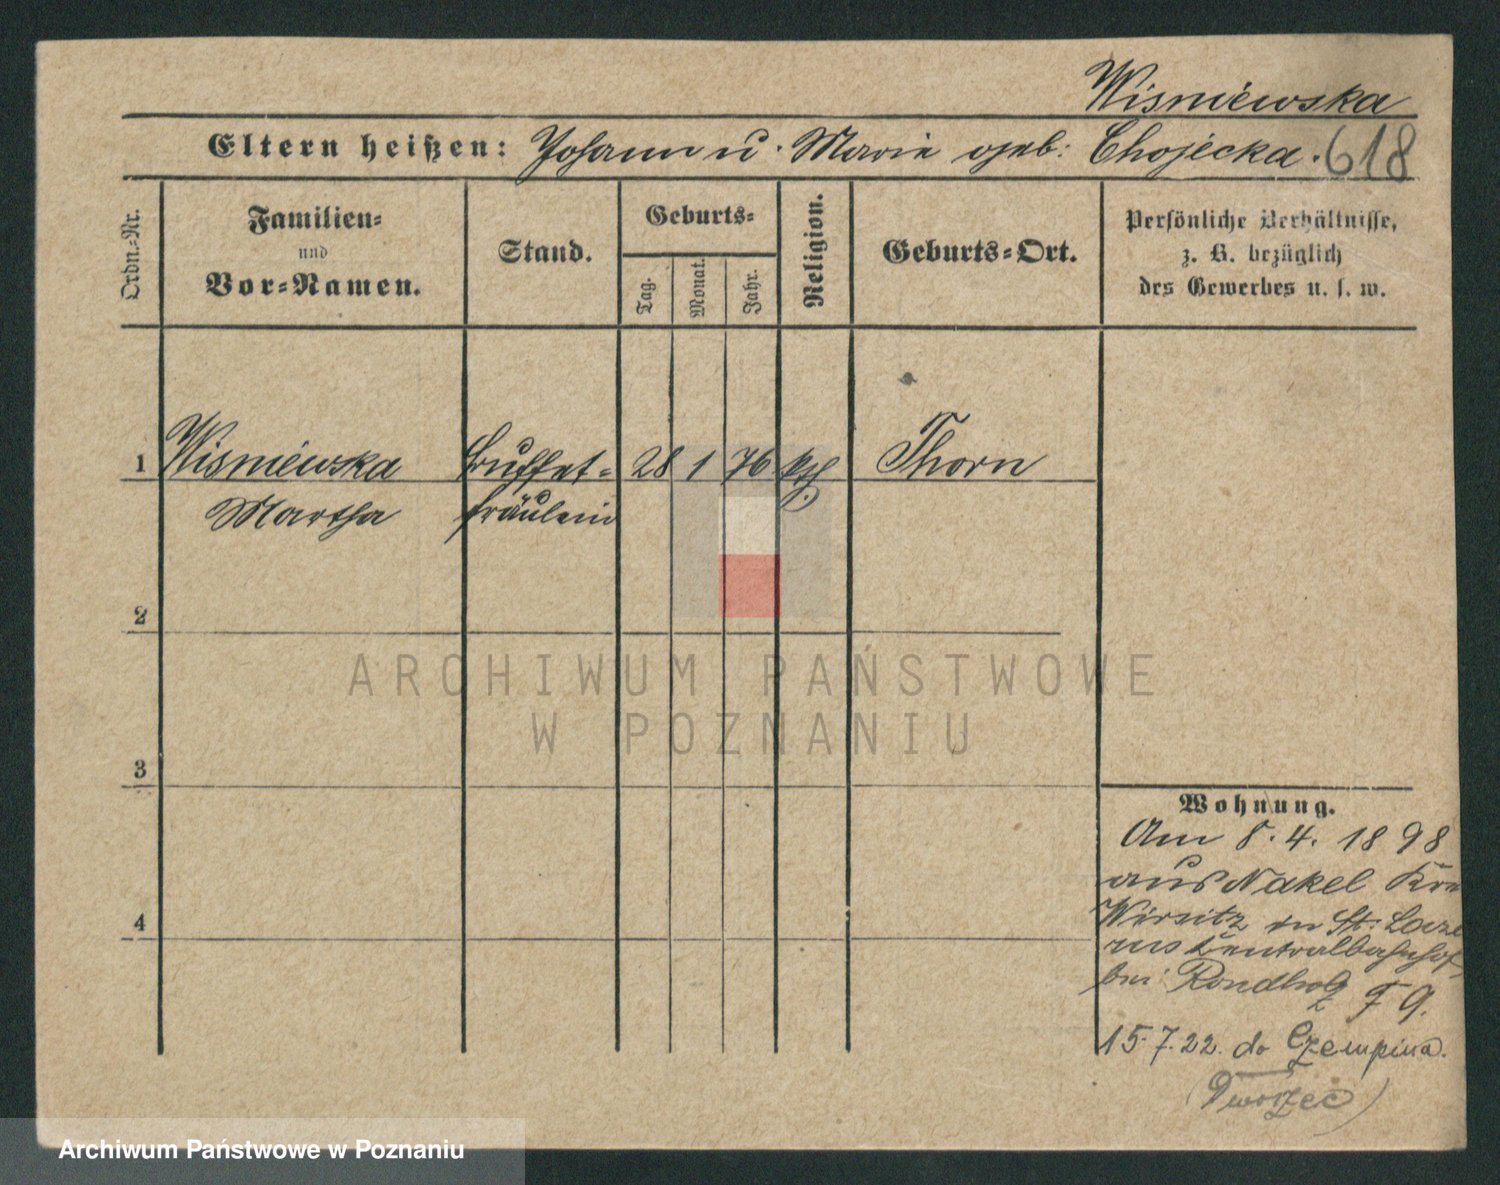 Wisniewska
Eltern heißen: Johann u. Marie geb: Chojecka. 618
Ordn.=Nr.
Familien=
und
Vor=Namen.
Stand.
Geburts=
Tag.
Monat.
Jahr.
Religion.
Geburts=Ort.
Persönliche Verhältnisse,
z. B. bezüglich
des Gewerbes u. s. w.
1 Wisniewska Buffet= 28 1 76 kth Thorn
Martha fräulein
2
3
4
Wohnung.
Am 8. 4. 1898
aus Nakel Kre
Wirsitz in St. Laza
rus Centralbahnhof
bei Rondholz
15.7.22. do Czempina.
(Dworzec)
ARCHIWUM PAŃSTWOWE
W POZNANIU
Archiwum Państwowe w Poznaniu